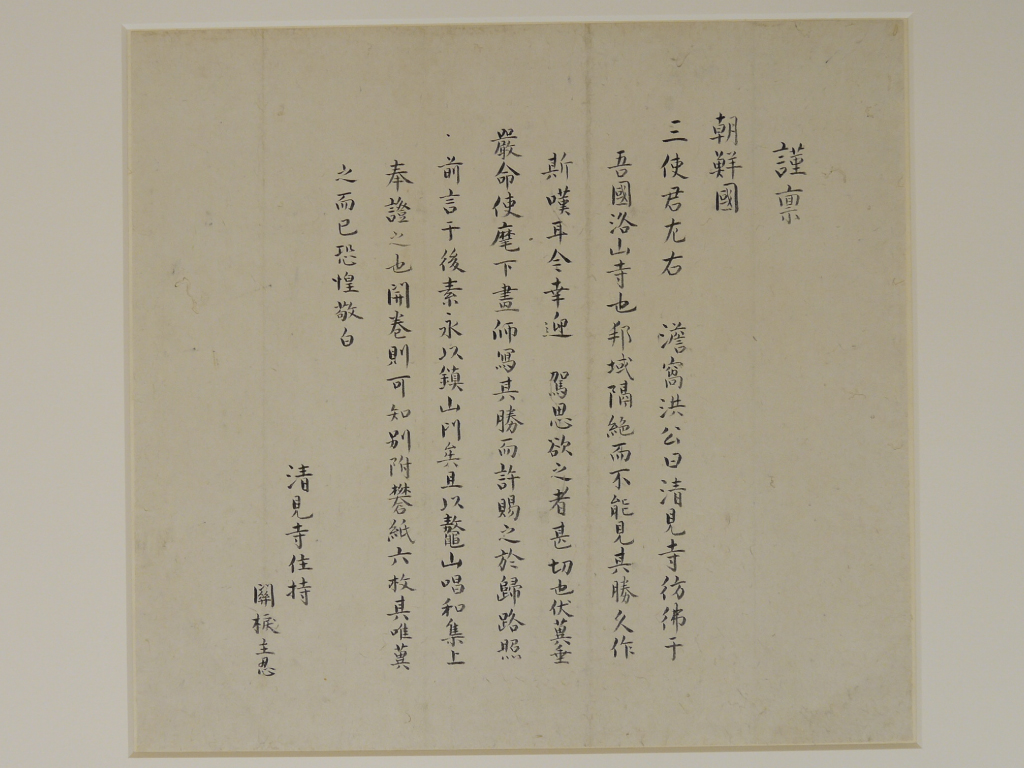 謹稟
朝鮮國
三使君左右 澹窩洪公曰清見寺彷彿于
吾國洛山寺也邦域隔絶而不能見其勝久作
斯嘆耳今幸迎 駕思欲之者甚切也伏蓂垂
嚴命使麾下畫師寫其勝而許賜之於歸路照
前言于後素永以鎮山門矣且以鼇山唱和集上
奉證之也開卷則可知別附礬紙六枚其唯蓂
之而已恐惶敬白
清見寺住持
關棙主忍